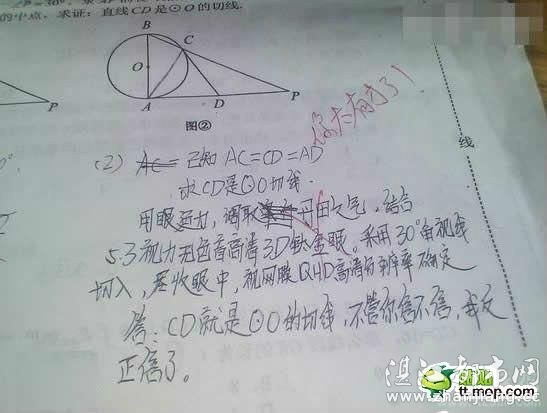 的中点，求证：直线CD是⊙O的切线.
B
C
O
A
D
P
P
图②
你太有才了！
(2) AC= 已知 AC=CD=AD
求CD是⊙O切线.
用眼运力，调取丹田之气，结合
5.3视力无色盲高清3D钛金眼。采用30°角视线
切入，尽收眼中，视网膜QHD高清分辨率确定
答：CD就是⊙O的切线，不管你信不信，我反
正信了。
线
湛江都市网
www.zhanjiang.cc
tt.mop.com